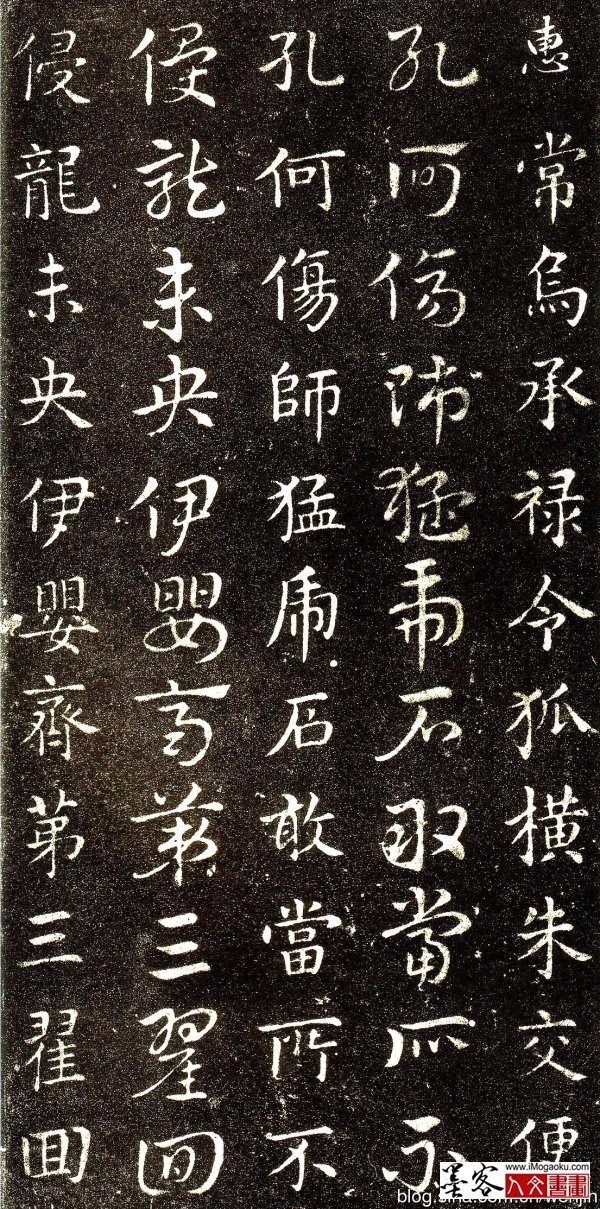 惠常烏承禄令狐橫朱交便
孔何傷師猛虎石敢當所不
孔何傷師猛虎石敢當所不
侵龍未央伊嬰齊第三翟回
侵龍未央伊嬰齊第三翟回
墨客
www.iMogaoku.com
人文書畫